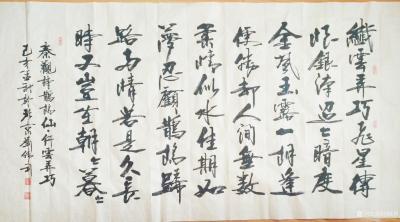 纖雲弄巧飛星傳
恨銀漢迢迢暗度
金風玉露一相逢
便勝却人間無數
柔情似水佳期如
夢忍顧鵲橋歸
路兩情若是久長
時又豈在朝朝暮暮
秦觀詞鵲橋仙纖雲弄巧